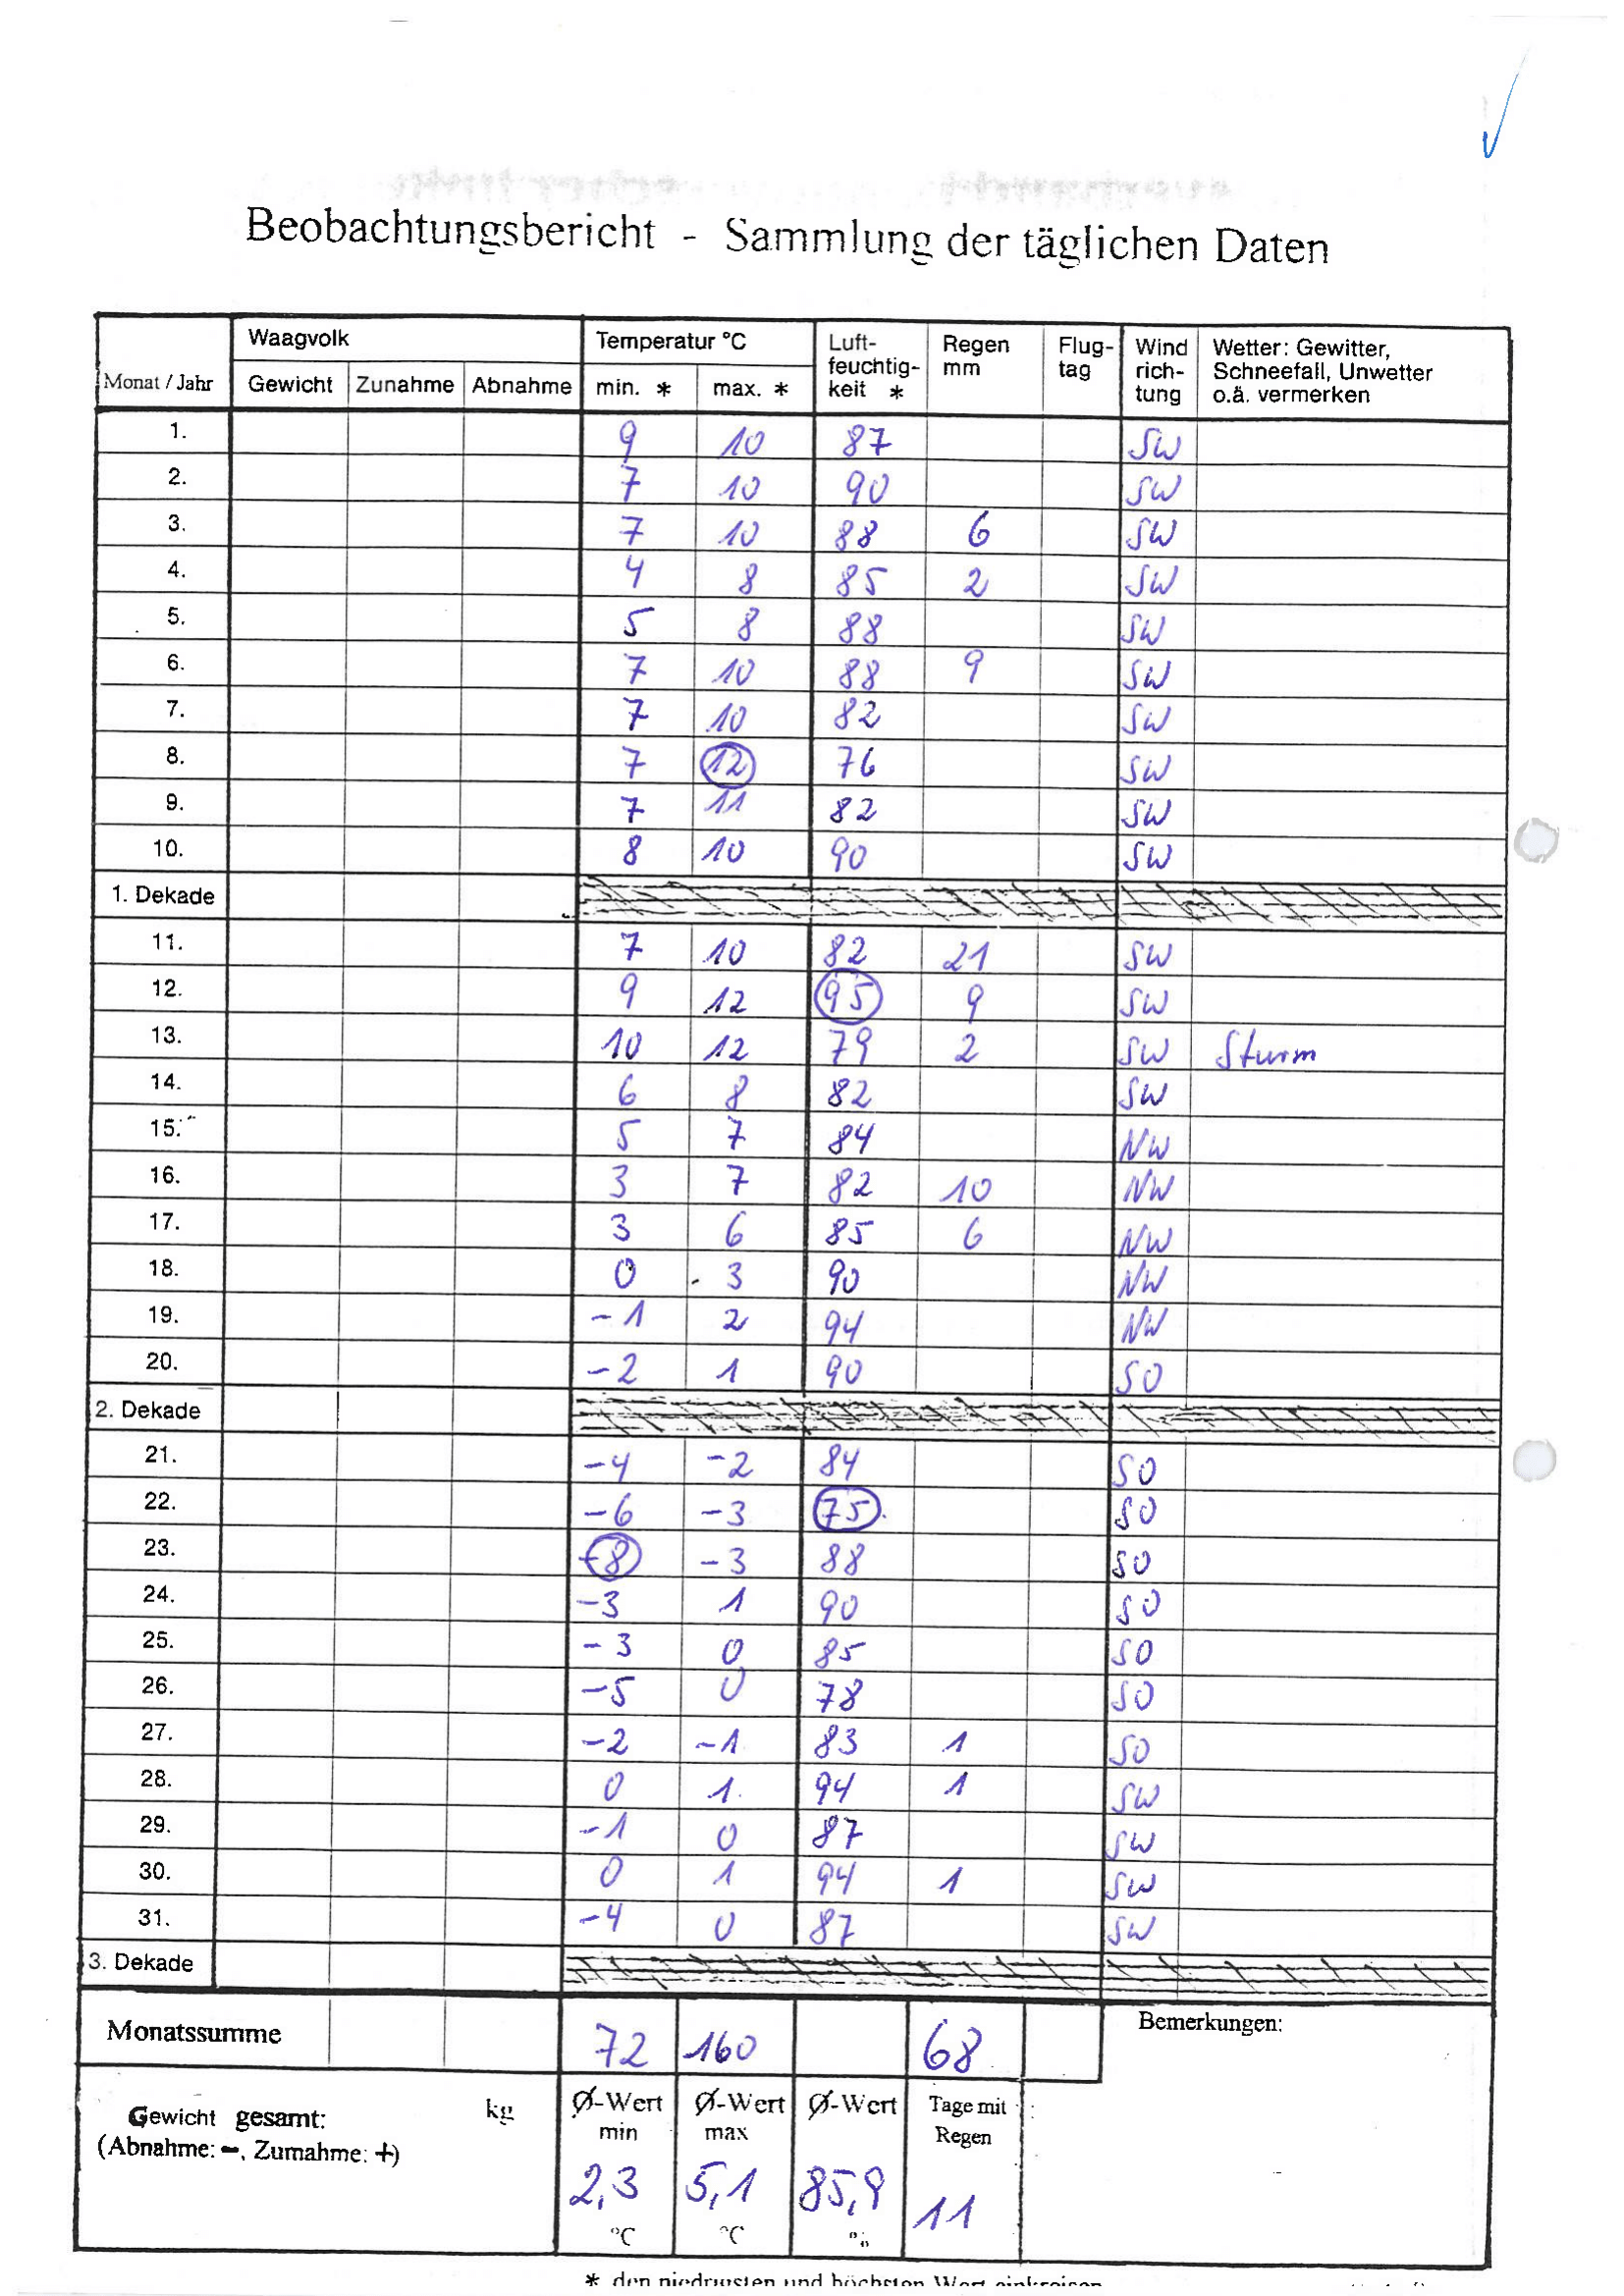 Beobachtungsbericht - Sammlung der täglichen Daten
Monat / Jahr
Waagvolk
Gewicht Zunahme Abnahme
Temperatur °C
min. * max. *
Luft-
feuchtig-
keit *
Regen
mm
Flug-
tag
Wind
rich-
tung
Wetter: Gewitter,
Schneefall, Unwetter
o.ä. vermerken
1. 9 10 87 SW
2. 7 10 90 SW
3. 7 10 88 6 SW
4. 4 8 85 2 SW
5. 5 8 88 SW
6. 7 10 88 9 SW
7. 7 10 82 SW
8. 7 12 76 SW
9. 7 11 82 SW
10. 8 10 90 SW
1. Dekade
11. 7 10 82 21 SW
12. 9 12 95 9 SW
13. 10 12 79 2 SW Sturm
14. 6 8 82 SW
15. 5 7 84 NW
16. 3 7 82 10 NW
17. 3 6 85 6 NW
18. 0 3 90 NW
19. -1 2 94 NW
20. -2 1 90 SO
2. Dekade
21. -4 -2 84 SO
22. -6 -3 75 SO
23. -8 -3 88 SO
24. -3 1 90 SO
25. -3 0 85 SO
26. -5 0 78 SO
27. -2 -1 83 1 SO
28. 0 1 94 1 SW
29. -1 0 87 SW
30. 0 1 94 1 SW
31. -4 0 87 SW
3. Dekade
Monatssumme 72 160 68
Bemerkungen:
Gewicht gesamt: kg
(Abnahme: -, Zumahme: +)
Ø-Wert
min
2,3
°C
Ø-Wert
max
5,1
°C
Ø-Wert
85,9
%
Tage mit
Regen
11
* den niedrigsten und höchsten Wert einkreisen